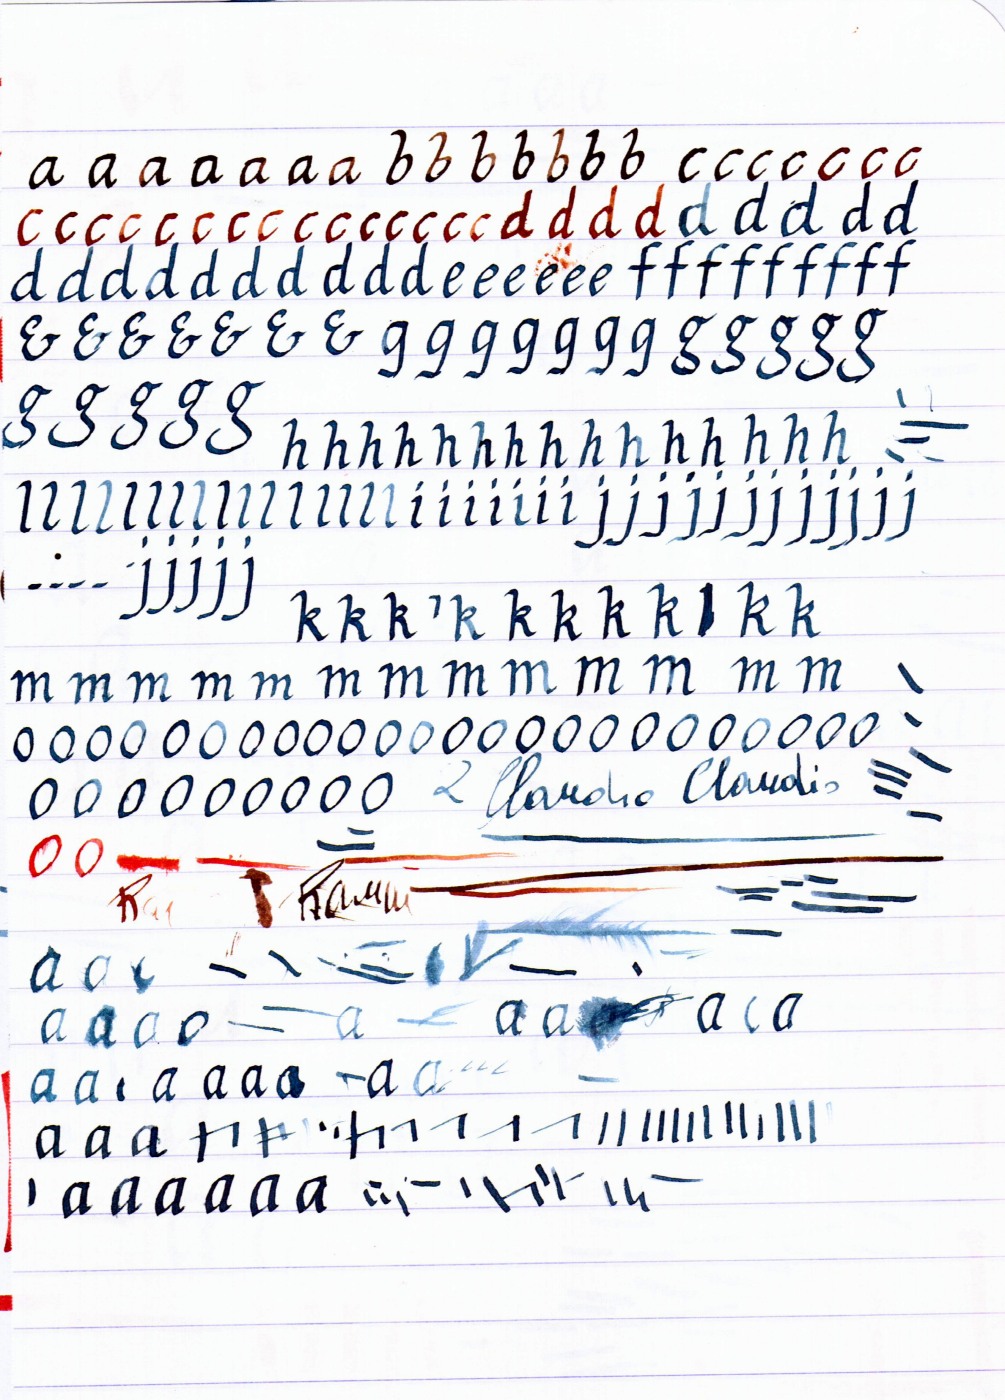 a a a a a a a b b b b b b b c c c c c c c
c c c c c c c c c c c c c c c d d d d d d d d d
d d d d d d d d d d e e e e e e e f f f f f f f f f
& & & & & & & g g g g g g g g g g g g
g g g g g h h h h h h h h h h h h h h h
l l l l l l l l l l l l l l l l i i i i i i i j j j j j j j j j j j j
j j j j j
k k k k k k k k k k
m m m m m m m m m m m m m
o o o o o o o o o o o o o o o o o o o o o o o o
o o o o o o o o o 2 Claudio Claudio
o o
a o
a a a o a a a a a
a a a a a a a a
a a a
a a a a a a